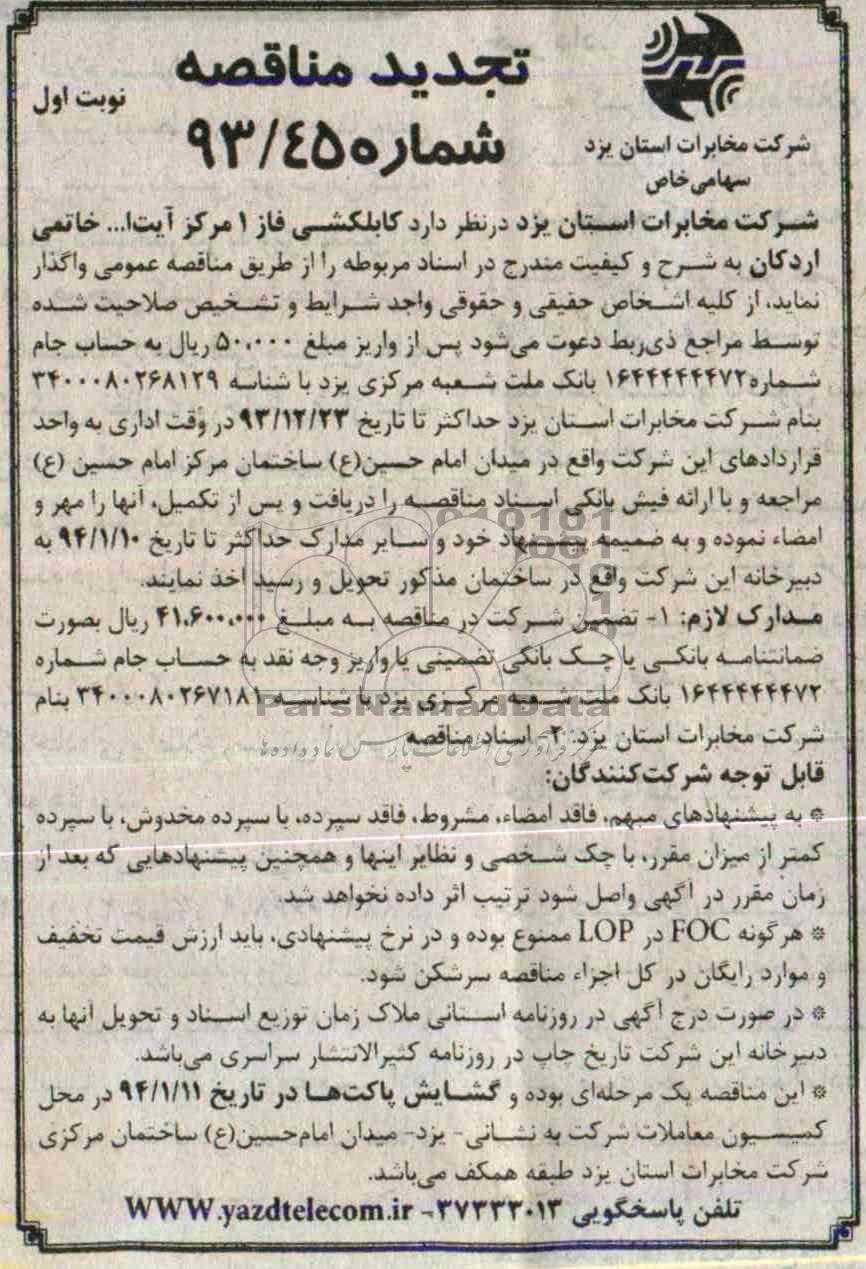 تجدید مناقصه
نوبت اول
شماره ۹۳/۴۵
شرکت مخابرات استان یزد
سهامی خاص
شرکت مخابرات استان یزد درنظر دارد کابلکشی فاز ۱ مرکز آیت‌ا... خاتمی
اردکان به شرح و کیفیت مندرج در اسناد مربوطه را از طریق مناقصه عمومی واگذار
نماید، از کلیه اشخاص حقیقی و حقوقی واجد شرایط و تشخیص صلاحیت شده
توسط مراجع ذی‌ربط دعوت می‌شود پس از واریز مبلغ ۵۰،۰۰۰ ریال به حساب جام
شماره ۱۶۴۴۴۴۴۴۷۲ بانک ملت شعبه مرکزی یزد با شناسه ۳۴۰۰۰۸۰۲۶۸۱۲۹
بنام شرکت مخابرات استان یزد حداکثر تا تاریخ ۹۳/۱۲/۲۳ در وقت اداری به واحد
قراردادهای این شرکت واقع در میدان امام حسین(ع) ساختمان مرکز امام حسین (ع)
مراجعه و با ارائه فیش بانکی اسناد مناقصه را دریافت و پس از تکمیل، آنها را مهر و
امضاء نموده و به ضمیمه پیشنهاد خود و سایر مدارک حداکثر تا تاریخ ۹۴/۱/۱۰ به
دبیرخانه این شرکت واقع در ساختمان مذکور تحویل و رسید اخذ نمایند.
مدارک لازم: ۱- تضمین شرکت در مناقصه به مبلغ ۴۱،۶۰۰،۰۰۰ ریال بصورت
ضمانتنامه بانکی یا چک بانکی تضمینی یا واریز وجه نقد به حساب جام شماره
۱۶۴۴۴۴۴۴۷۲ بانک ملت شعبه مرکزی یزد با شناسه ۳۴۰۰۰۸۰۲۶۷۱۸۱ بنام
شرکت مخابرات استان یزد: ۲- اسناد مناقصه
ParsNamadData
قابل توجه شرکت‌کنندگان:
* به پیشنهادهای مبهم، فاقد امضاء، مشروط، فاقد سپرده، با سپرده مخدوش، با سپرده
کمتر از میزان مقرر، با چک شخصی و نظایر اینها و همچنین پیشنهادهایی که بعد از
زمان مقرر در آگهی واصل شود ترتیب اثر داده نخواهد شد.
* هرگونه FOC در LOP ممنوع بوده و در نرخ پیشنهادی، باید ارزش قیمت تخفیف
و موارد رایگان در کل اجزاء مناقصه سرشکن شود.
* در صورت درج آگهی در روزنامه استانی ملاک زمان توزیع اسناد و تحویل آنها به
دبیرخانه این شرکت تاریخ چاپ در روزنامه کثیرالانتشار سراسری می‌باشد.
* این مناقصه یک مرحله‌ای بوده و گشایش پاکت‌ها در تاریخ ۹۴/۱/۱۱ در محل
کمیسیون معاملات شرکت به نشانی- یزد- میدان امام‌حسین(ع) ساختمان مرکزی
شرکت مخابرات استان یزد طبقه همکف می‌باشد.
تلفن پاسخگویی ۳۷۳۳۳۰۱۳- WWW.yazdtelecom.ir